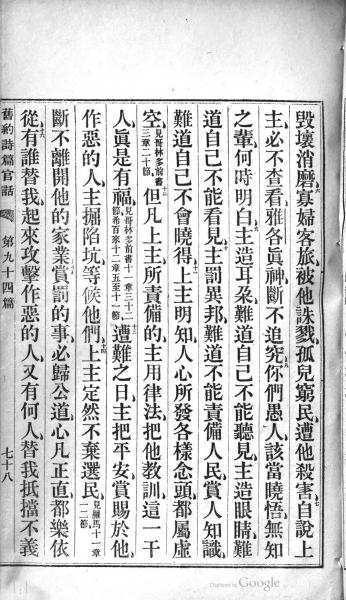 毀壞消磨寡婦客旅被他誅戮孤兒窮民遭他殺害自說上
主必不查看雅各眞神斷不追究你們愚人該當曉悟無知
之輩何時明白主造耳朶難道自己不能聽見主造眼睛難
道自己不能看見主罰異邦難道不能責備人民賞人知識
難道自己不會曉得上主明知人心所發各樣念頭都屬虛
空見哥林多前書三章二十節但凡上主所責備的主用律法把他教訓這一干
人眞是有福見哥林多前書十一章三十二節希百來十二章五至十一節遭難之日主把平安賞賜於他
作惡的人主掘陷坑等候他們上主定然不棄選民見羅馬十一章一二節
斷不離開他的家業賞罰的事必歸公道心凡正直都樂依
從有誰替我起來攻擊作惡的人又有何人替我抵擋不義
舊約詩篇官話 第九十四篇 七十八
Digitized by Google